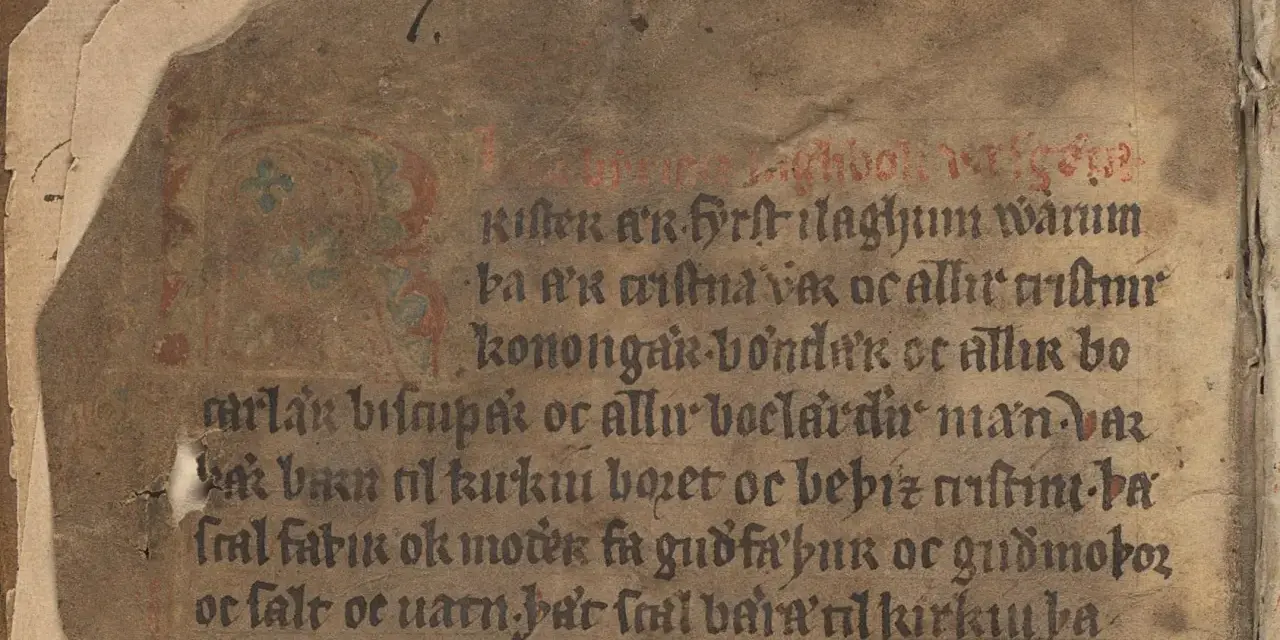 laghbok væsgøtæ
RisteR æR fyrst ilaghum warum
þa æR cristna vaR oc allir cristnir
konongæR·bøndæR oc alliR bo
carlæR biscupæR oc allir boclærdir mæn·VaR
þæR barn til kirkiu boret oc beþiz cristnu·þa
scal faþiR ok moþer fa guðfæþuR oc guðmoþor
oc salt oc uatn·þæt scal bæræ til kirkiu þa